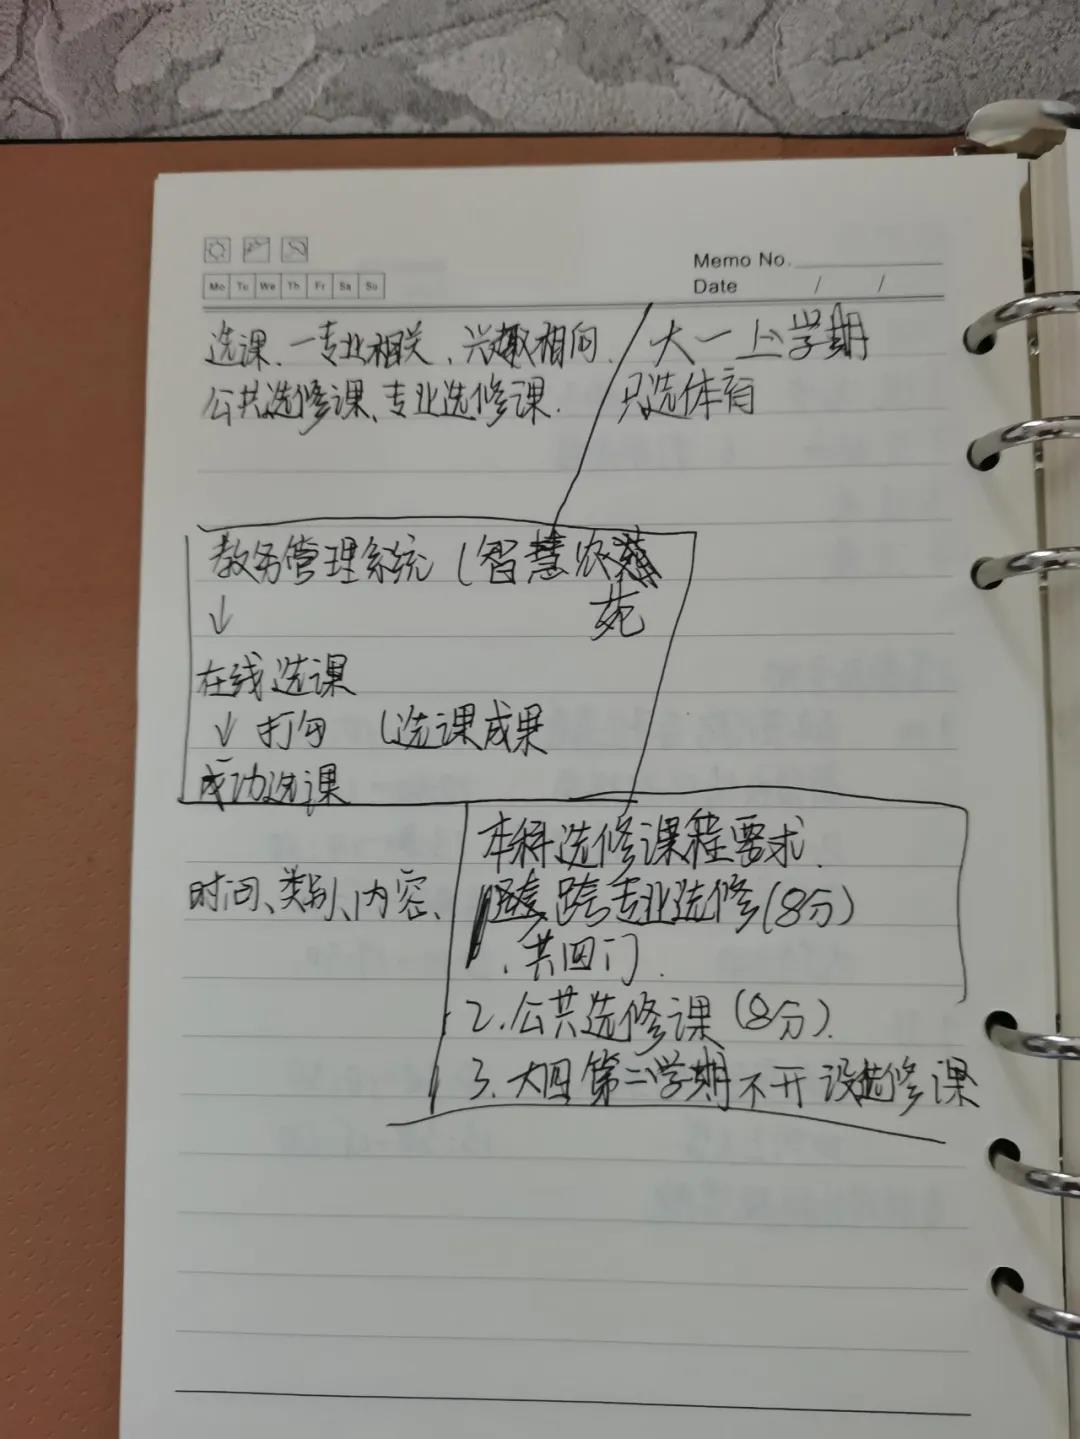 Memo No.
Date / /
Mo Tu We Th Fr Sa Su
选课、一专业相关、兴趣相同.
公共选修课、专业选修课.
大一上学期
只选体育
教务管理系统 (智慧农
苑
↓
在线选课
↓ 打勾 (选课成果
成功选课
时间、类别、内容、
本科选修课程要求.
跨专业选修(8分)
、共四门.
2.公共选修课(8分).
3.大四第二学期不开设选修课